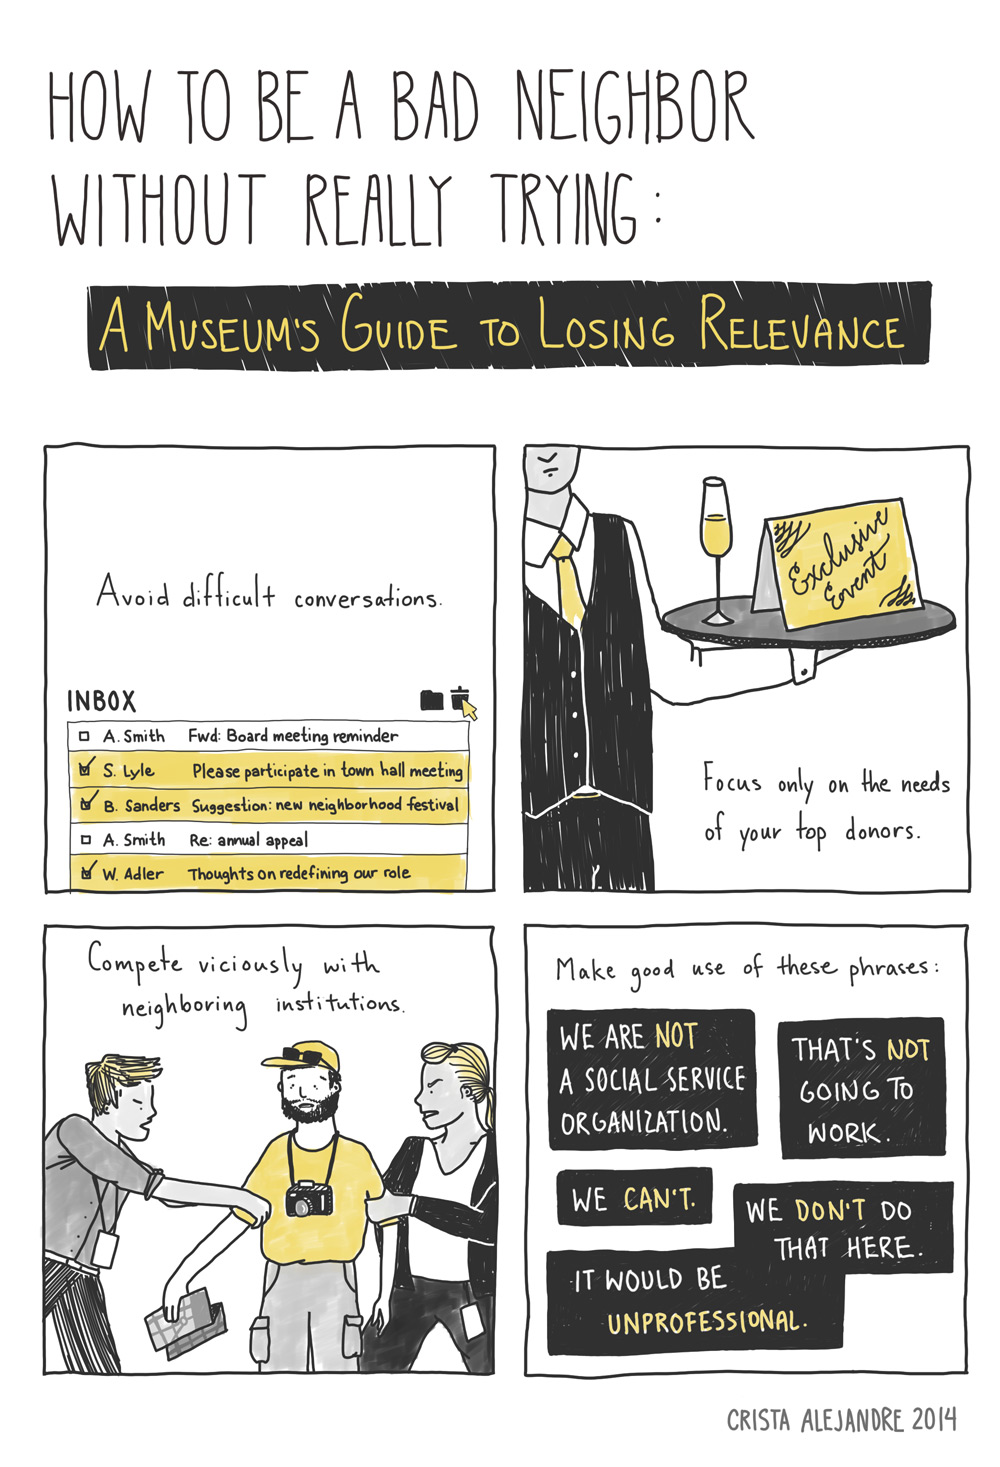 HOW TO BE A BAD NEIGHBOR
WITHOUT REALLY TRYING:
A MUSEUM'S GUIDE TO LOSING RELEVANCE
Avoid difficult conversations.
INBOX
A. Smith Fwd: Board meeting reminder
S. Lyle Please participate in town hall meeting
B. Sanders Suggestion: new neighborhood festival
A. Smith Re: annual appeal
W. Adler Thoughts on redefining our role
Exclusive
Event
Focus only on the needs
of your top donors.
Compete viciously with
neighboring institutions.
Make good use of these phrases:
WE ARE NOT
A SOCIAL SERVICE
ORGANIZATION.
THAT'S NOT
GOING TO
WORK.
WE CAN'T.
WE DON'T DO
THAT HERE.
IT WOULD BE
UNPROFESSIONAL.
CRISTA ALEJANDRE 2014